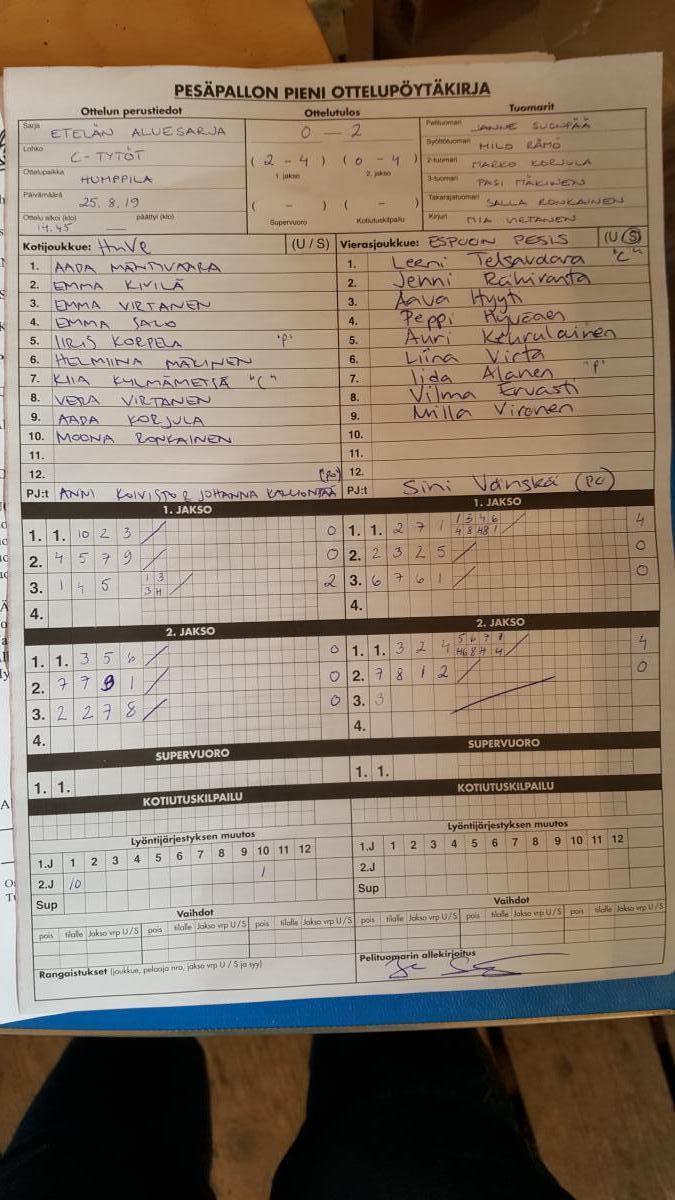 PESÄPALLON PIENI OTTELUPÖYTÄKIRJA
Ottelun perustiedot Ottelutulos Tuomarit
Sarja ETELÄN ALUESARJA
Lohko C-TYTÖT
Ottelupaikka HUMPPILA
Päivämäärä 25.8.19
Ottelu alkoi (klo) 14.45 päättyi (klo)
0 - 2
( 2 - 4 ) ( 0 - 4 )
1. jakso 2. jakso
( - ) ( - )
Supervuoro Kotiutuskilpailu
Pelituomari JANNE SUONPÄÄ
Syöttötuomari MILO RÄMÖ
2-tuomari MARKO KORJULA
3-tuomari PASI MÄKINEN
Takarajatuomari SALLA RONKAINEN
Kirjuri MIA VIRTANEN
Kotijoukkue: HuVe (U / S)
1. AADA MÄNTIVAARA
2. EMMA KIVILÄ
3. EMMA VIRTANEN
4. EMMA SALO
5. IIRIS KORPELA "P"
6. HELMIINA MÄKINEN
7. KIIA KYLMÄMETSÄ "C"
8. VERA VIRTANEN
9. AADA KORJULA
10. MOONA RONKAINEN
11.
12.
PJ:t ANNI KOIVISTO & JOHANNA KALLIONTÄÄ (PC)
Vierasjoukkue: ESPOON PESIS (U / S)
1. Leeni Telsavaara "C"
2. Jenni Rähiranta
3. Aava Hyyti
4. Peppi
5. Auri Kehrulainen
6. Liina Virta
7. Iida Alanen "P"
8. Vilma Ervasti
9. Milla Vironen
10.
11.
12.
PJ:t Sini Vänskä (PC)
1. JAKSO
1. 1. 10 2 3 / 0
2. 4 5 7 9 / 0
3. 1 4 5 1 3 / 2
3 H
4.
1. JAKSO
1. 1. 2 7 1 1 3 4 6 / 4
4 8 4 8 1
2. 2 3 2 5 / 0
3. 6 7 6 1 / 0
4.
2. JAKSO
1. 1. 3 5 6 / 0
2. 7 7 9 1 / 0
3. 2 2 7 8 / 0
4.
2. JAKSO
1. 1. 3 2 4 5 6 7 1 / 4
H 6 8 H 4
2. 7 8 1 2 / 0
3. 3
4.
SUPERVUORO
1. 1.
SUPERVUORO
1. 1.
KOTIUTUSKILPAILU
KOTIUTUSKILPAILU
Lyöntijärjestyksen muutos
1.J 1 2 3 4 5 6 7 8 9 10 11 12
2.J 10 1
Sup
Lyöntijärjestyksen muutos
1.J 1 2 3 4 5 6 7 8 9 10 11 12
2.J
Sup
Vaihdot
pois tilalle Jakso vrp U / S pois tilalle Jakso vrp U / S pois tilalle Jakso vrp U / S
Vaihdot
pois tilalle Jakso vrp U / S pois tilalle Jakso vrp U / S pois tilalle Jakso vrp U / S
Rangaistukset (joukkue, pelaaja nro, jakso vrp U / S ja syy)
Pelituomarin allekirjoitus